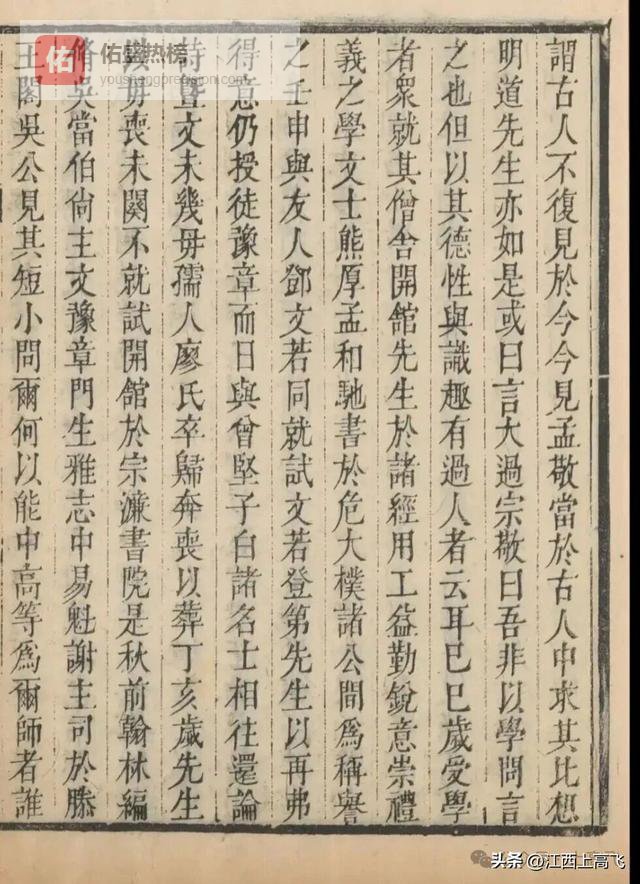 佑
佑盛热榜
youshengprecision.com
謂古人不復見於今今見孟敬當於古人中求其比想
明道先生亦如是或曰言大過宗敬曰吾非以學問言
之也但以其德性與識趣有過人者云耳巳巳歲受學
者衆就其僧舍開舘先生於諸經用工益勤銳意崇禮
義之學文士熊厚孟和馳書於危大樸諸公間爲稱譽
之壬申與友人鄧文若同就試文若登第先生以再弗
得意仍授徒豫章而日與曾堅子白諸名士相往還論
詩暨文未幾毋孺人廖氏卒歸奔喪以葬丁亥歲先生
毋喪未闋不就試開舘於宗濂書院是秋前翰林編
脩吳當伯尙主文豫章門生雅志中易魁謝主司於滕
王閣吳公見其短小問爾何以能中高等爲爾師者誰
头条 @江西上高飞